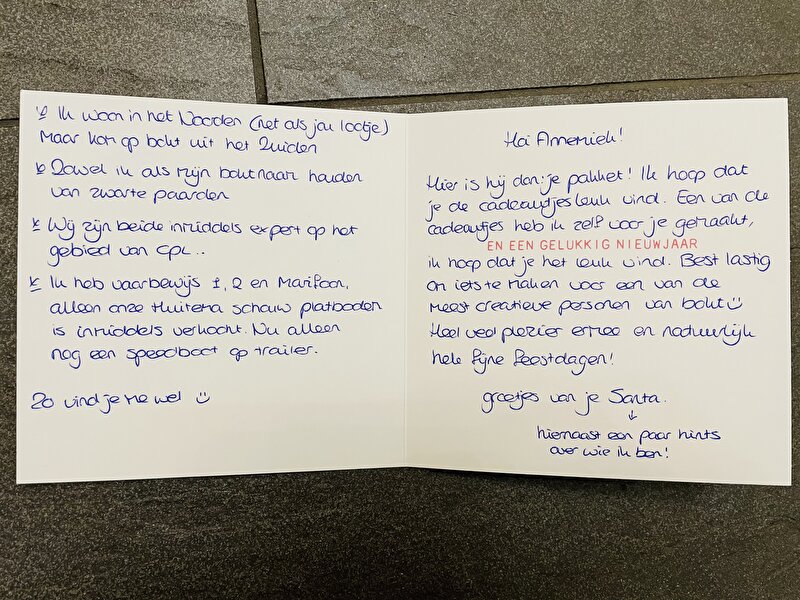 Ik woon in het Noorden (net als jou lootje)
Maar kom op bokt uit het Zuiden
Zowel ik als mijn boktnaar houden
van zwarte paarden
Wij zijn beide inmiddels expert op het
gebied van CPL..
Ik heb vaarbewijs 1, 2 en Marifoon,
alleen onze Huitema schouw platboden
is inmiddels verkocht. Nu alleen
nog een speedboot op trailer.
Zo vind je me wel
Hoi Annemiek!
Hier is hij dan: je pakket! Ik hoop dat
je de cadeautjes leuk vind. Een van de
cadeautjes heb ik zelf voor je gemaakt,
EN EEN GELUKKIG NIEUWJAAR
ik hoop dat je het leuk vind. Best lastig
om iets te maken voor een van de
meest creatieve personen van bokt
Heel veel plezier ermee en natuurlijk
hele fijne feestdagen!
groetjes van je Santa.
↓
hiernaast een paar hints
over wie ik ben!